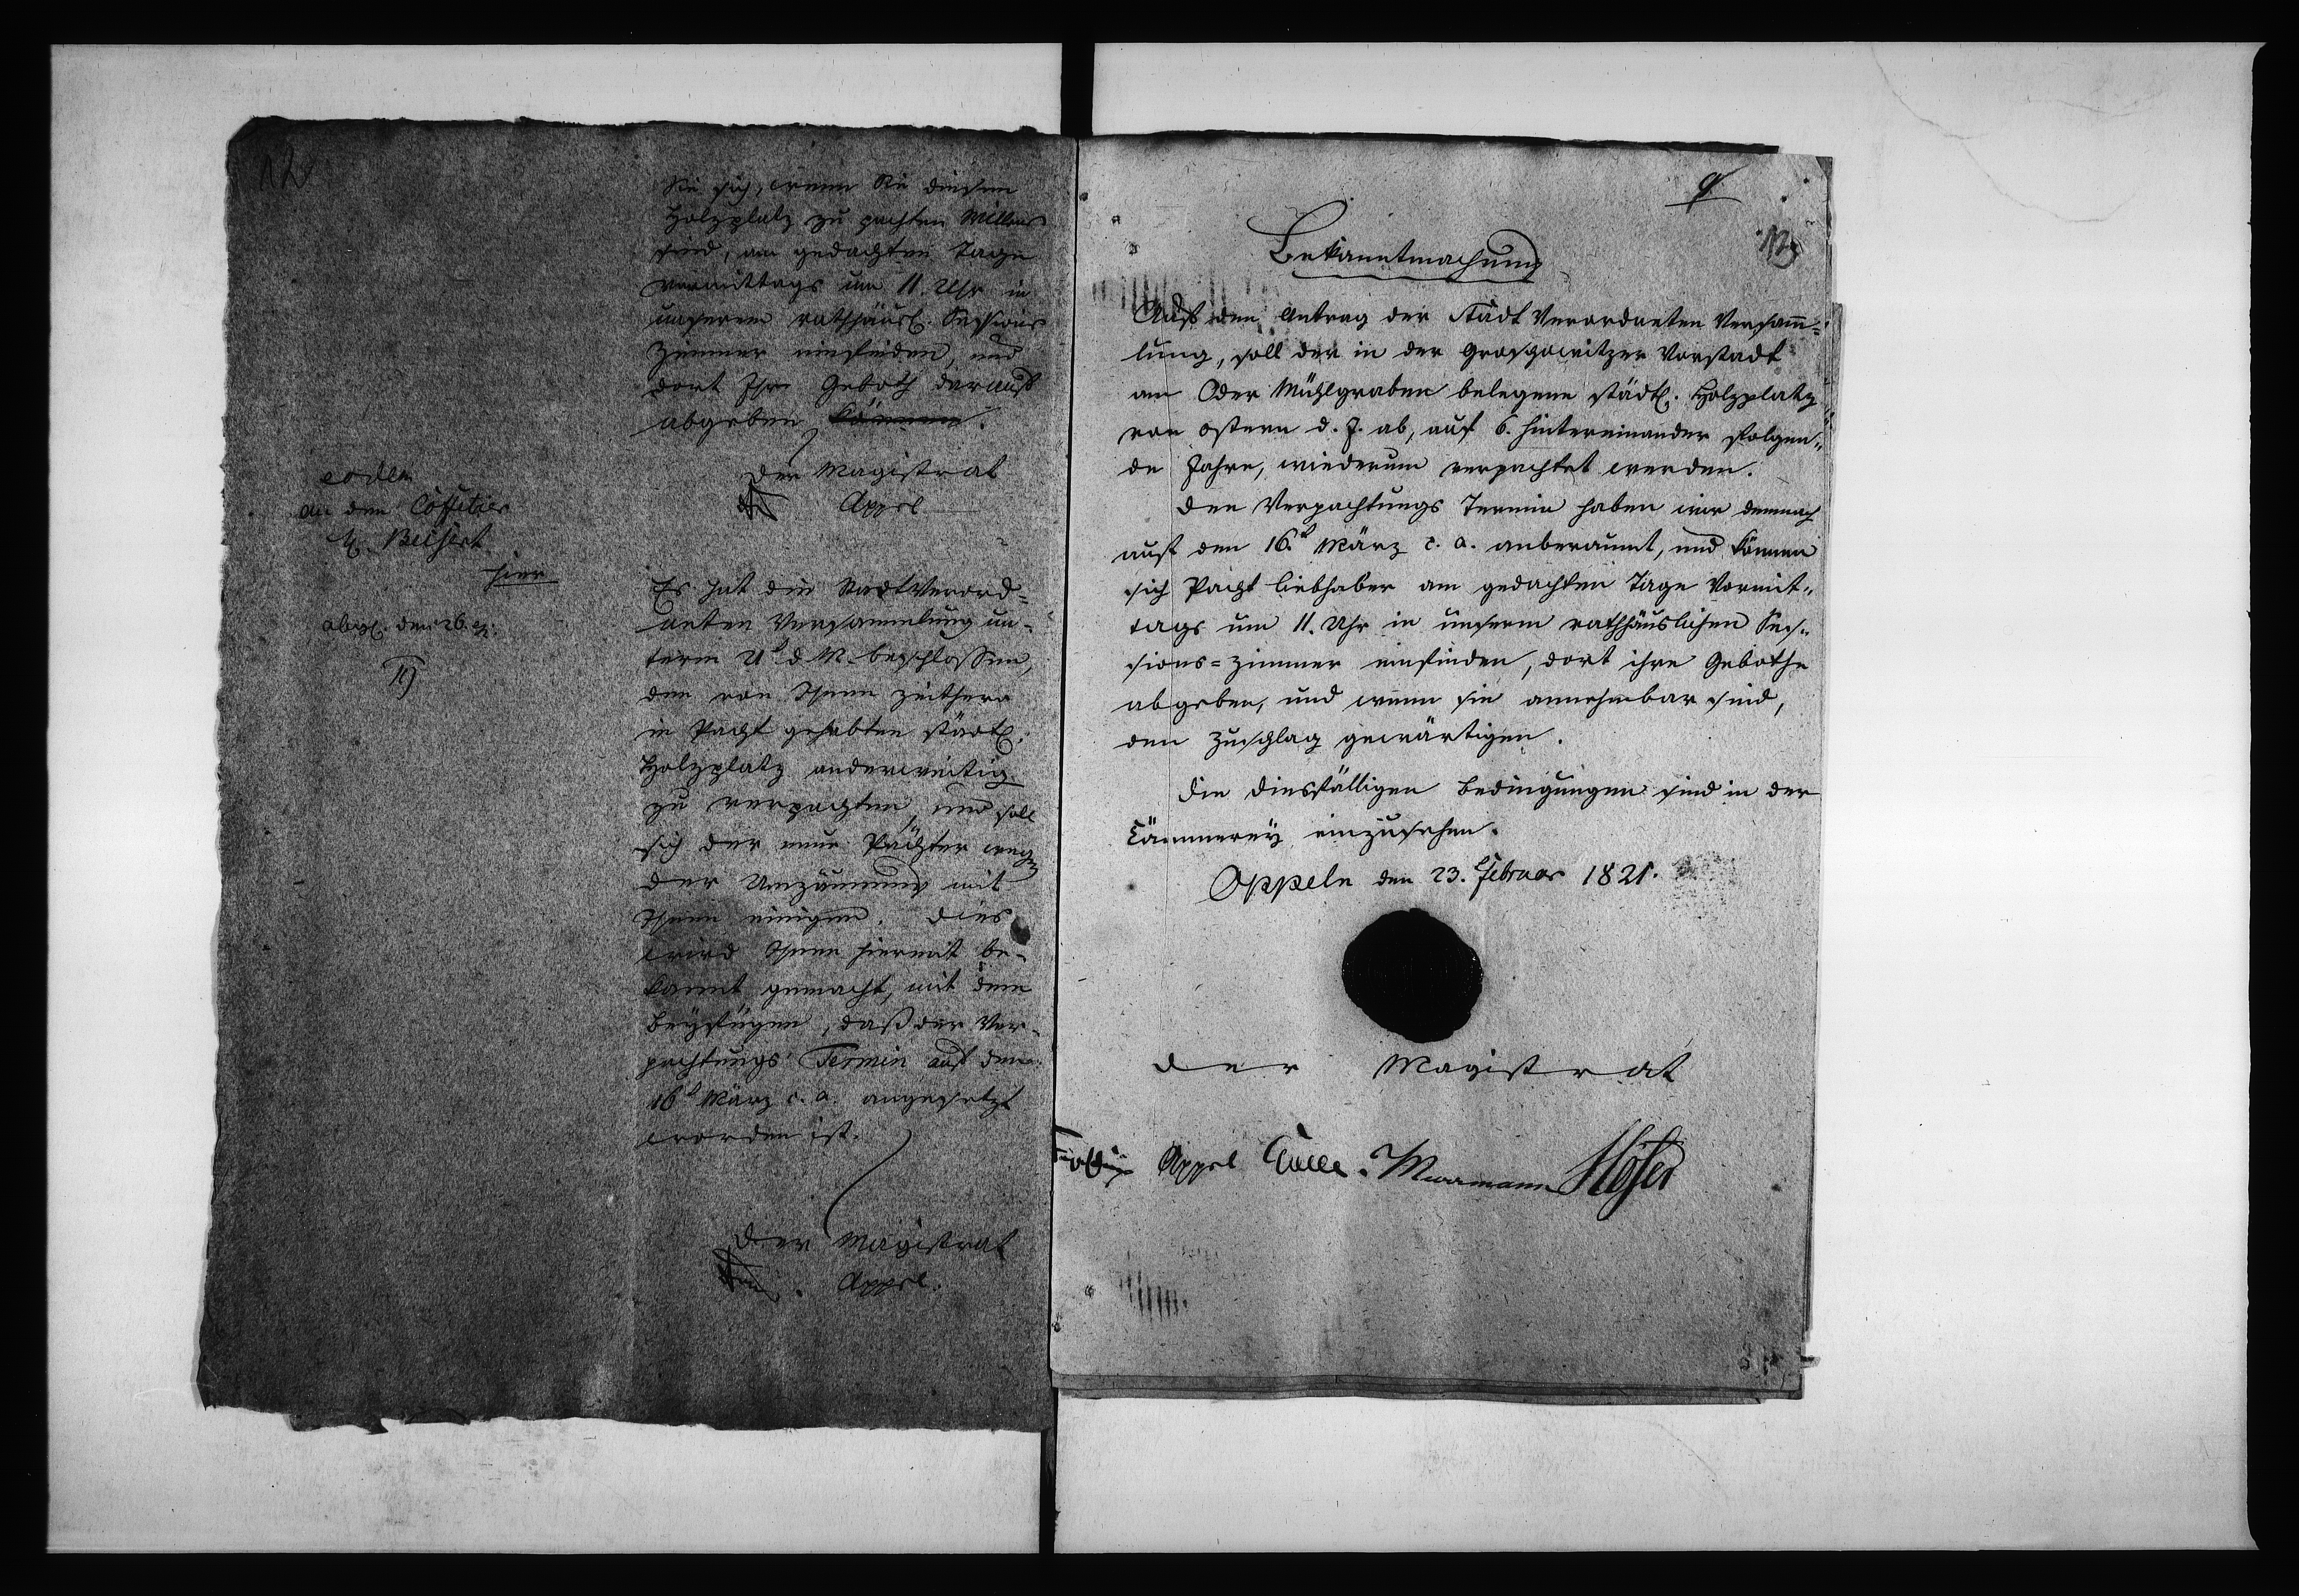 12
Sie sich, wenn Sie diesen
Holzplatz zu pachten Willens
sind, am gedachten Tage
vormittags um 11 Uhr in
unserem rathhäusl. Sessions
Zimmer einfinden, und
dort Ihr Geboth darauf
abgeben können.
Der Magistrat
Appel
eodem
an den Coffetier
H. Beisert
hier
abgs. den 26. ej.
Es hat die Stadt Verord-
neten Versammlung un-
term d M. beschlossen,
den von Ihnen zeither
in Pacht gehabten städt.
Holzplatz anderweitig
zu verpachten, und soll
sich der neue Pächter wegen
der Umzäunung mit
Ihnen einigen. Dies
wird Ihnen hiermit be-
kannt gemacht, mit dem
Beyfügen, daß der Ver-
pachtungs Termin auf den
16t März c. a. angesetzt
worden ist.
Der Magistrat
Appel.
9
13
Bekanntmachung
Auf den Antrag der Stadt Verordneten Versamm=
lung, soll der in der Groschowitzer Vorstadt
am Oder Mühlgraben belegene städt. Holzplatz
von Ostern d. J. ab, auf 6. hintereinander folgen=
de Jahre, wiederum verpachtet werden.
Den Verpachtungs Termin haben wir demnach
auf den 16.t März c. a. anberaumt, und können
sich Pacht liebhaber am gedachten Tage Vormit=
tags um 11. Uhr in unserm rathhäuslichen Ses=
sions=Zimmer einfinden, dort ihre Gebothe
abgeben, und wenn sie annehmbar sind,
den Zuschlag gewärtigen.
Die diesfälligen Bedingungen sind in der
Cämmerey einzusehen.
Oppeln den 23. Februar 1821.
Der Magistrat
Appel Murrmann Höfer